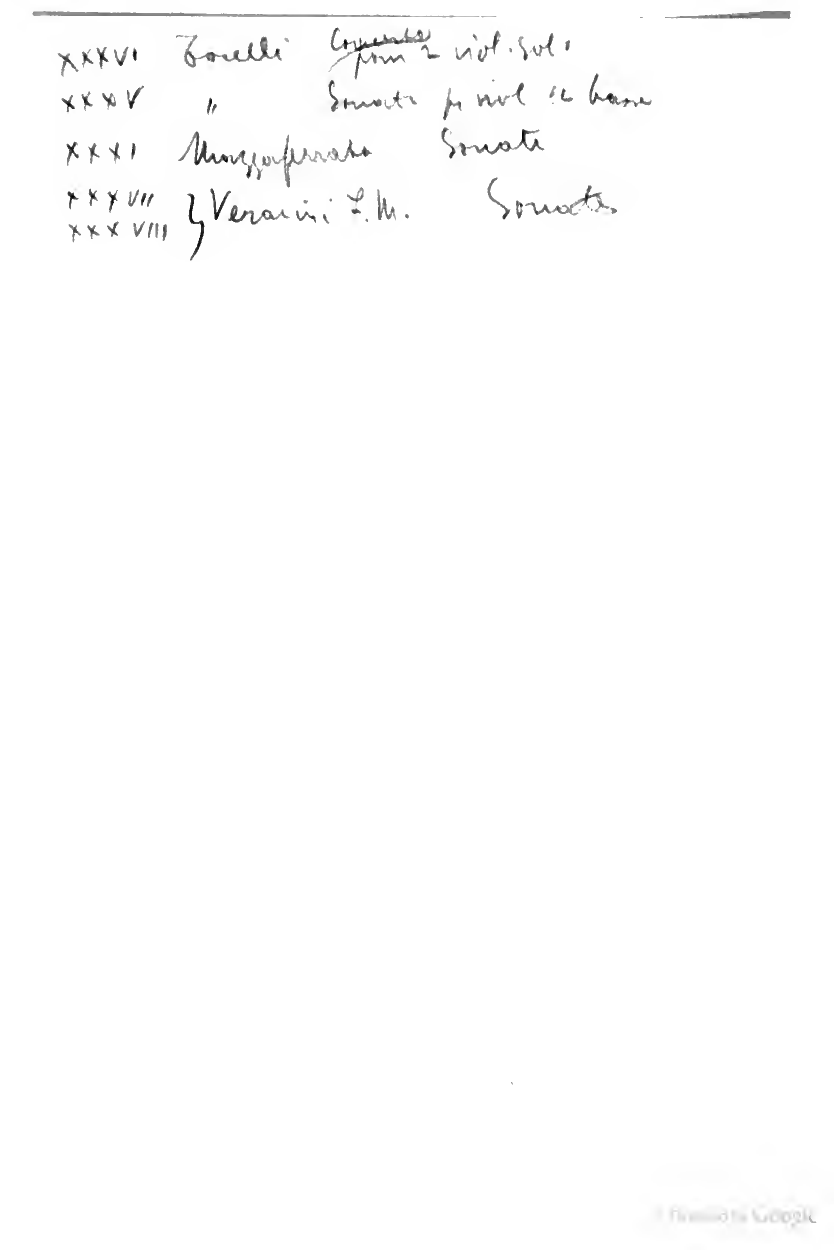 XXXVI Torelli Concerto pour 2 viol. Soli
XXXV " Sonata p. viol e basse
XXXI Mazzaferrata Sonate
XXXVII } Veracini F.M. Sonates
XXXVIII
Google